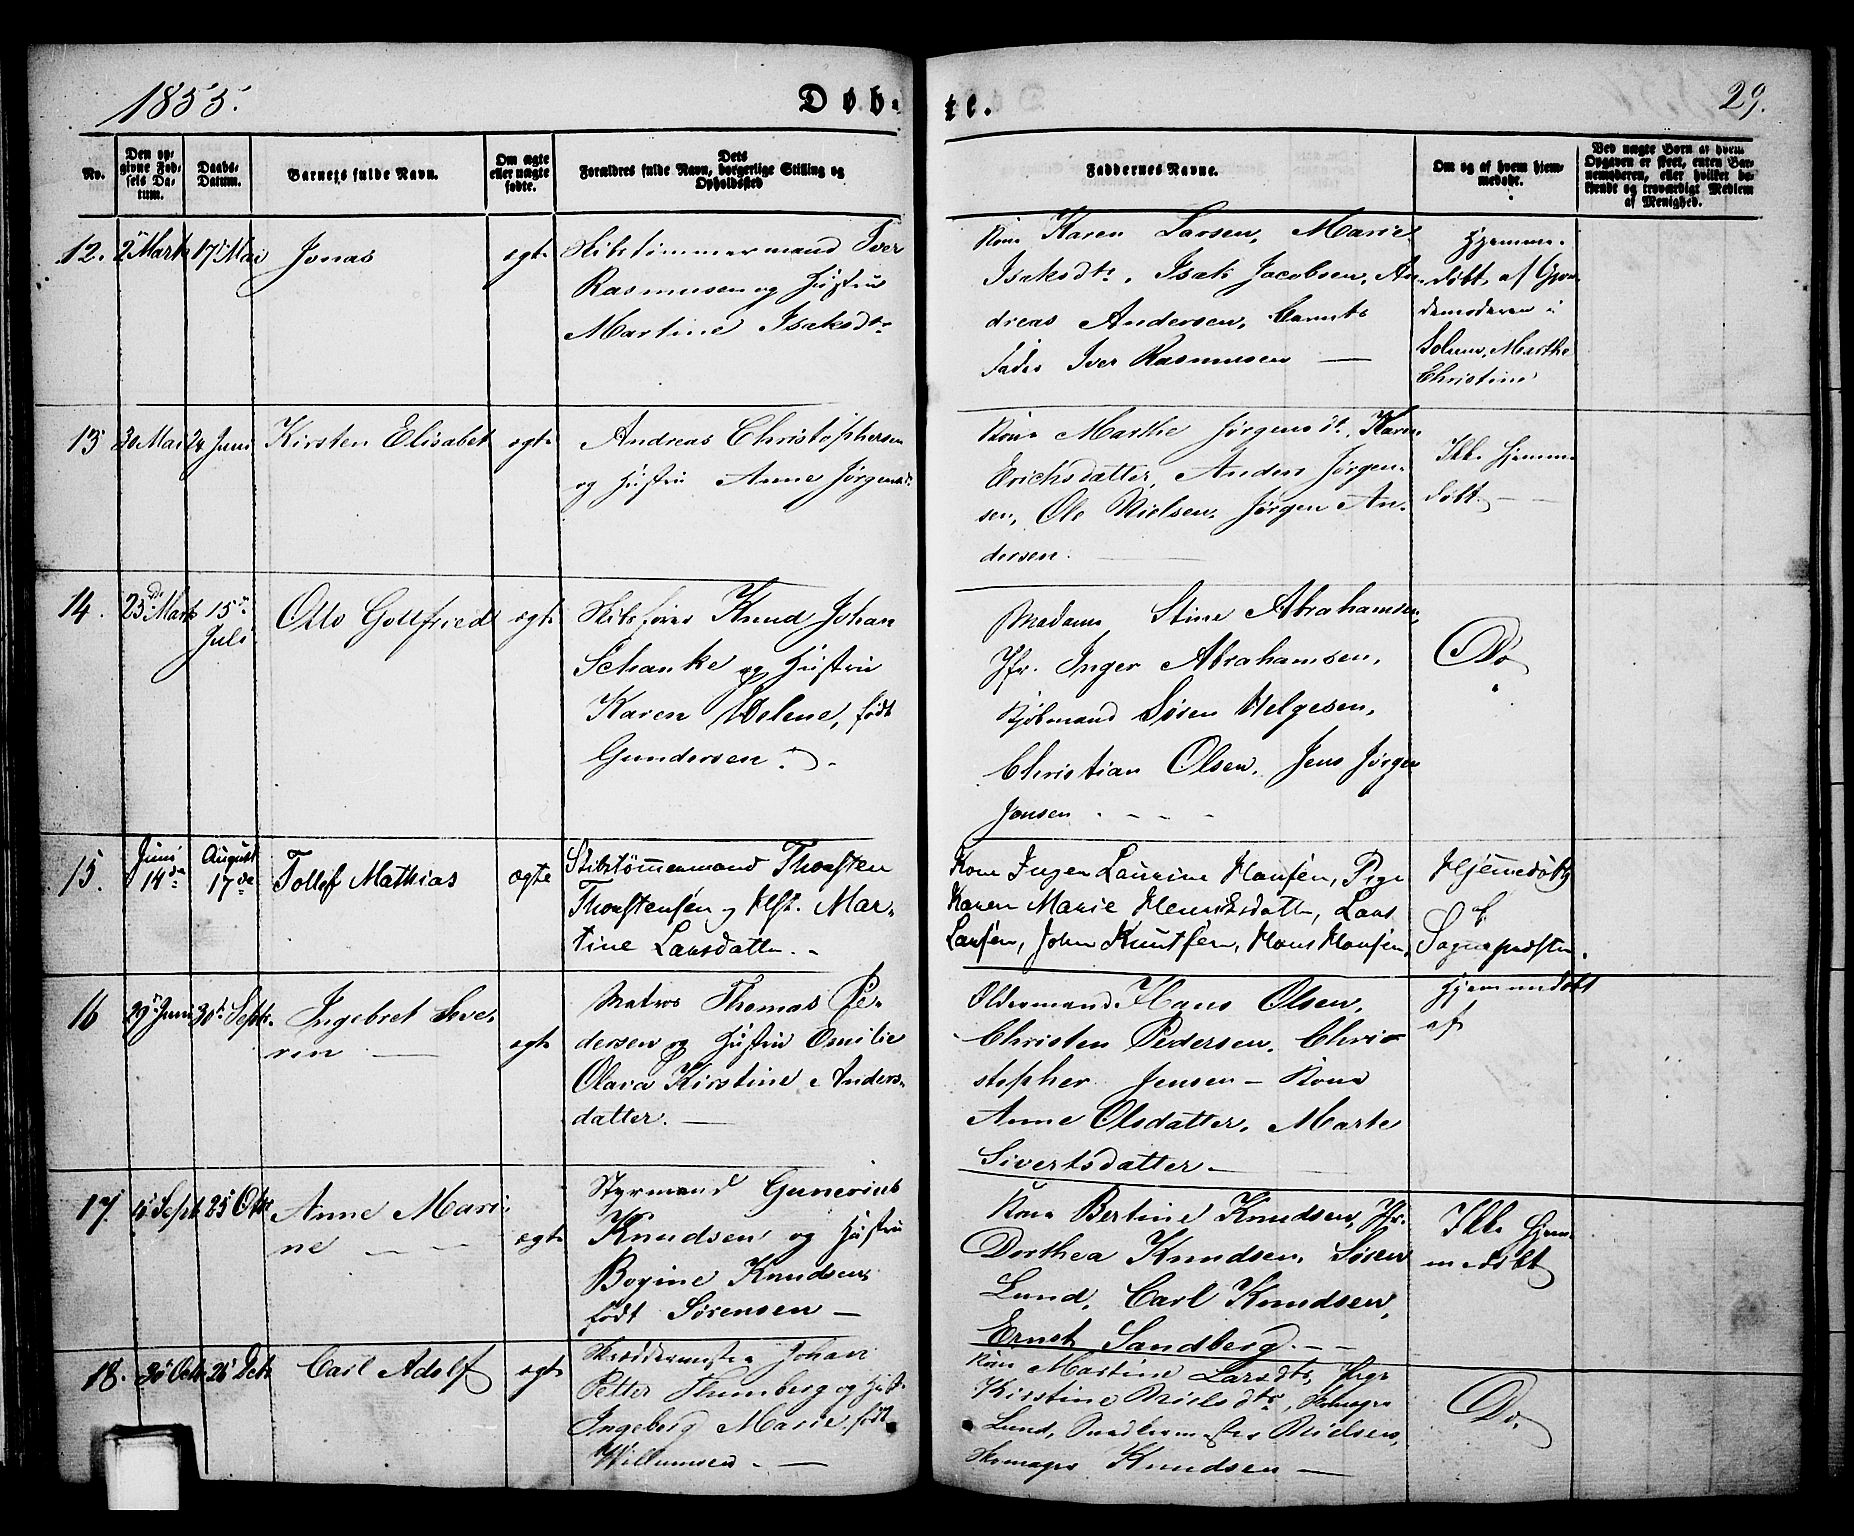 1855.
Døb-
te.
29.
No.
Den op-
givne Fød-
sels Da-
tum.
Daabs-
Datum.
Barnets fulde Navn.
Om ægte
eller uægte
fødte.
Forældres fulde Navn, borgerlige Stilling og
Dets
Opholdssted
Faddernes Navne.
Om og af hvem hjem-
medøbt.
Ved uægte Børn af hvem
Opgaven er skeet, enten Bar-
nemoderen, eller hvilket be-
kjendt og troværdigt Medlem
af Menighed.
12. 2 Marts 17 Mai Jonas ægte
Skibstømmermand Iver
Rasmusen og Hustru
Martine Isaksdtr
Kone Karen Larsen, Marie
Isaksdtr, Isak Jacobsen, An-
dreas Andersen, Barnets
Fader Iver Rasmusen —
Hjemme-
døbt af Gjor-
demoderen i
Solum, Marthe
Christine
13 30 Mai 24 Juni Kirsten Elisabet ægte
Andreas Christophersen
og Hustru Anne Jørgensdt
Kone Marthe Jørgensdt, Karen
Erichsdatter, Anders Jørgen-
sen, Ole Nielsen, Jørgen An-
dersen.
Ikke hjemme-
døbt —
14. 23de Marts 15 Juli Otto Gottfried ægte
Skibsfører Knud Johan
Schanke og Hustru
Karen Helene, født
Gundersen.
Madam Stine Abrahamsen,
Jfr. Inger Abrahamsen,
Kjøbmand Søren Helgesen,
Christian Olsen, Jens Jørgen
Jonsen
Do
15. Juni 14de August 17de Tollef Mathias ægte
Skibstømmermand Thorsten
Thorstensen og Hst. Mar-
tine Larsdatter. -
Kone Inger Laurine Hansen, Pige
Karen Marie Henriksdatter, Lars
Larsen, John Knutsen, Hans Hansen,
Hjemmedøbt
af
Sognepræsten.
16 29 Juni 30te Septbr. Ingebret Seve-
rin — ægte
Matros Thomas Pe-
dersen og Hustru Emilie
Olava Kirstine Anders-
datter. —
Oldermand Hans Olsen,
Christen Pedersen, Chri-
stopher Jensen — Kone
Anne Olsdatter, Marte
Sivertsdatter —
Hjemmedøbt
af
17. 4 Septb. 25 Oktr Anne Mari-
ne ægte
Styrmand Gunerius
Knudsen og Hustru
Bogine Knudsen
født Sørensen —
Kone Bertine Knudsen, Jfr.
Dorthea Knudsen, Søren
Lund, Carl Knudsen,
Ernst Sandberg. —
Ikke hjem-
medøbt
18. 30 Octr 26 Decbr Carl Adolf ægte
Skræddermester Johan
Petter Thunberg og Hust.
Ingeborg Marie, født
Willumsen. —
Kone Martine Larsdtr, Pige
Kirstine Nielsdtr, Skomager
Lund, Nielsen,
Skomager Knudsen —
Do.